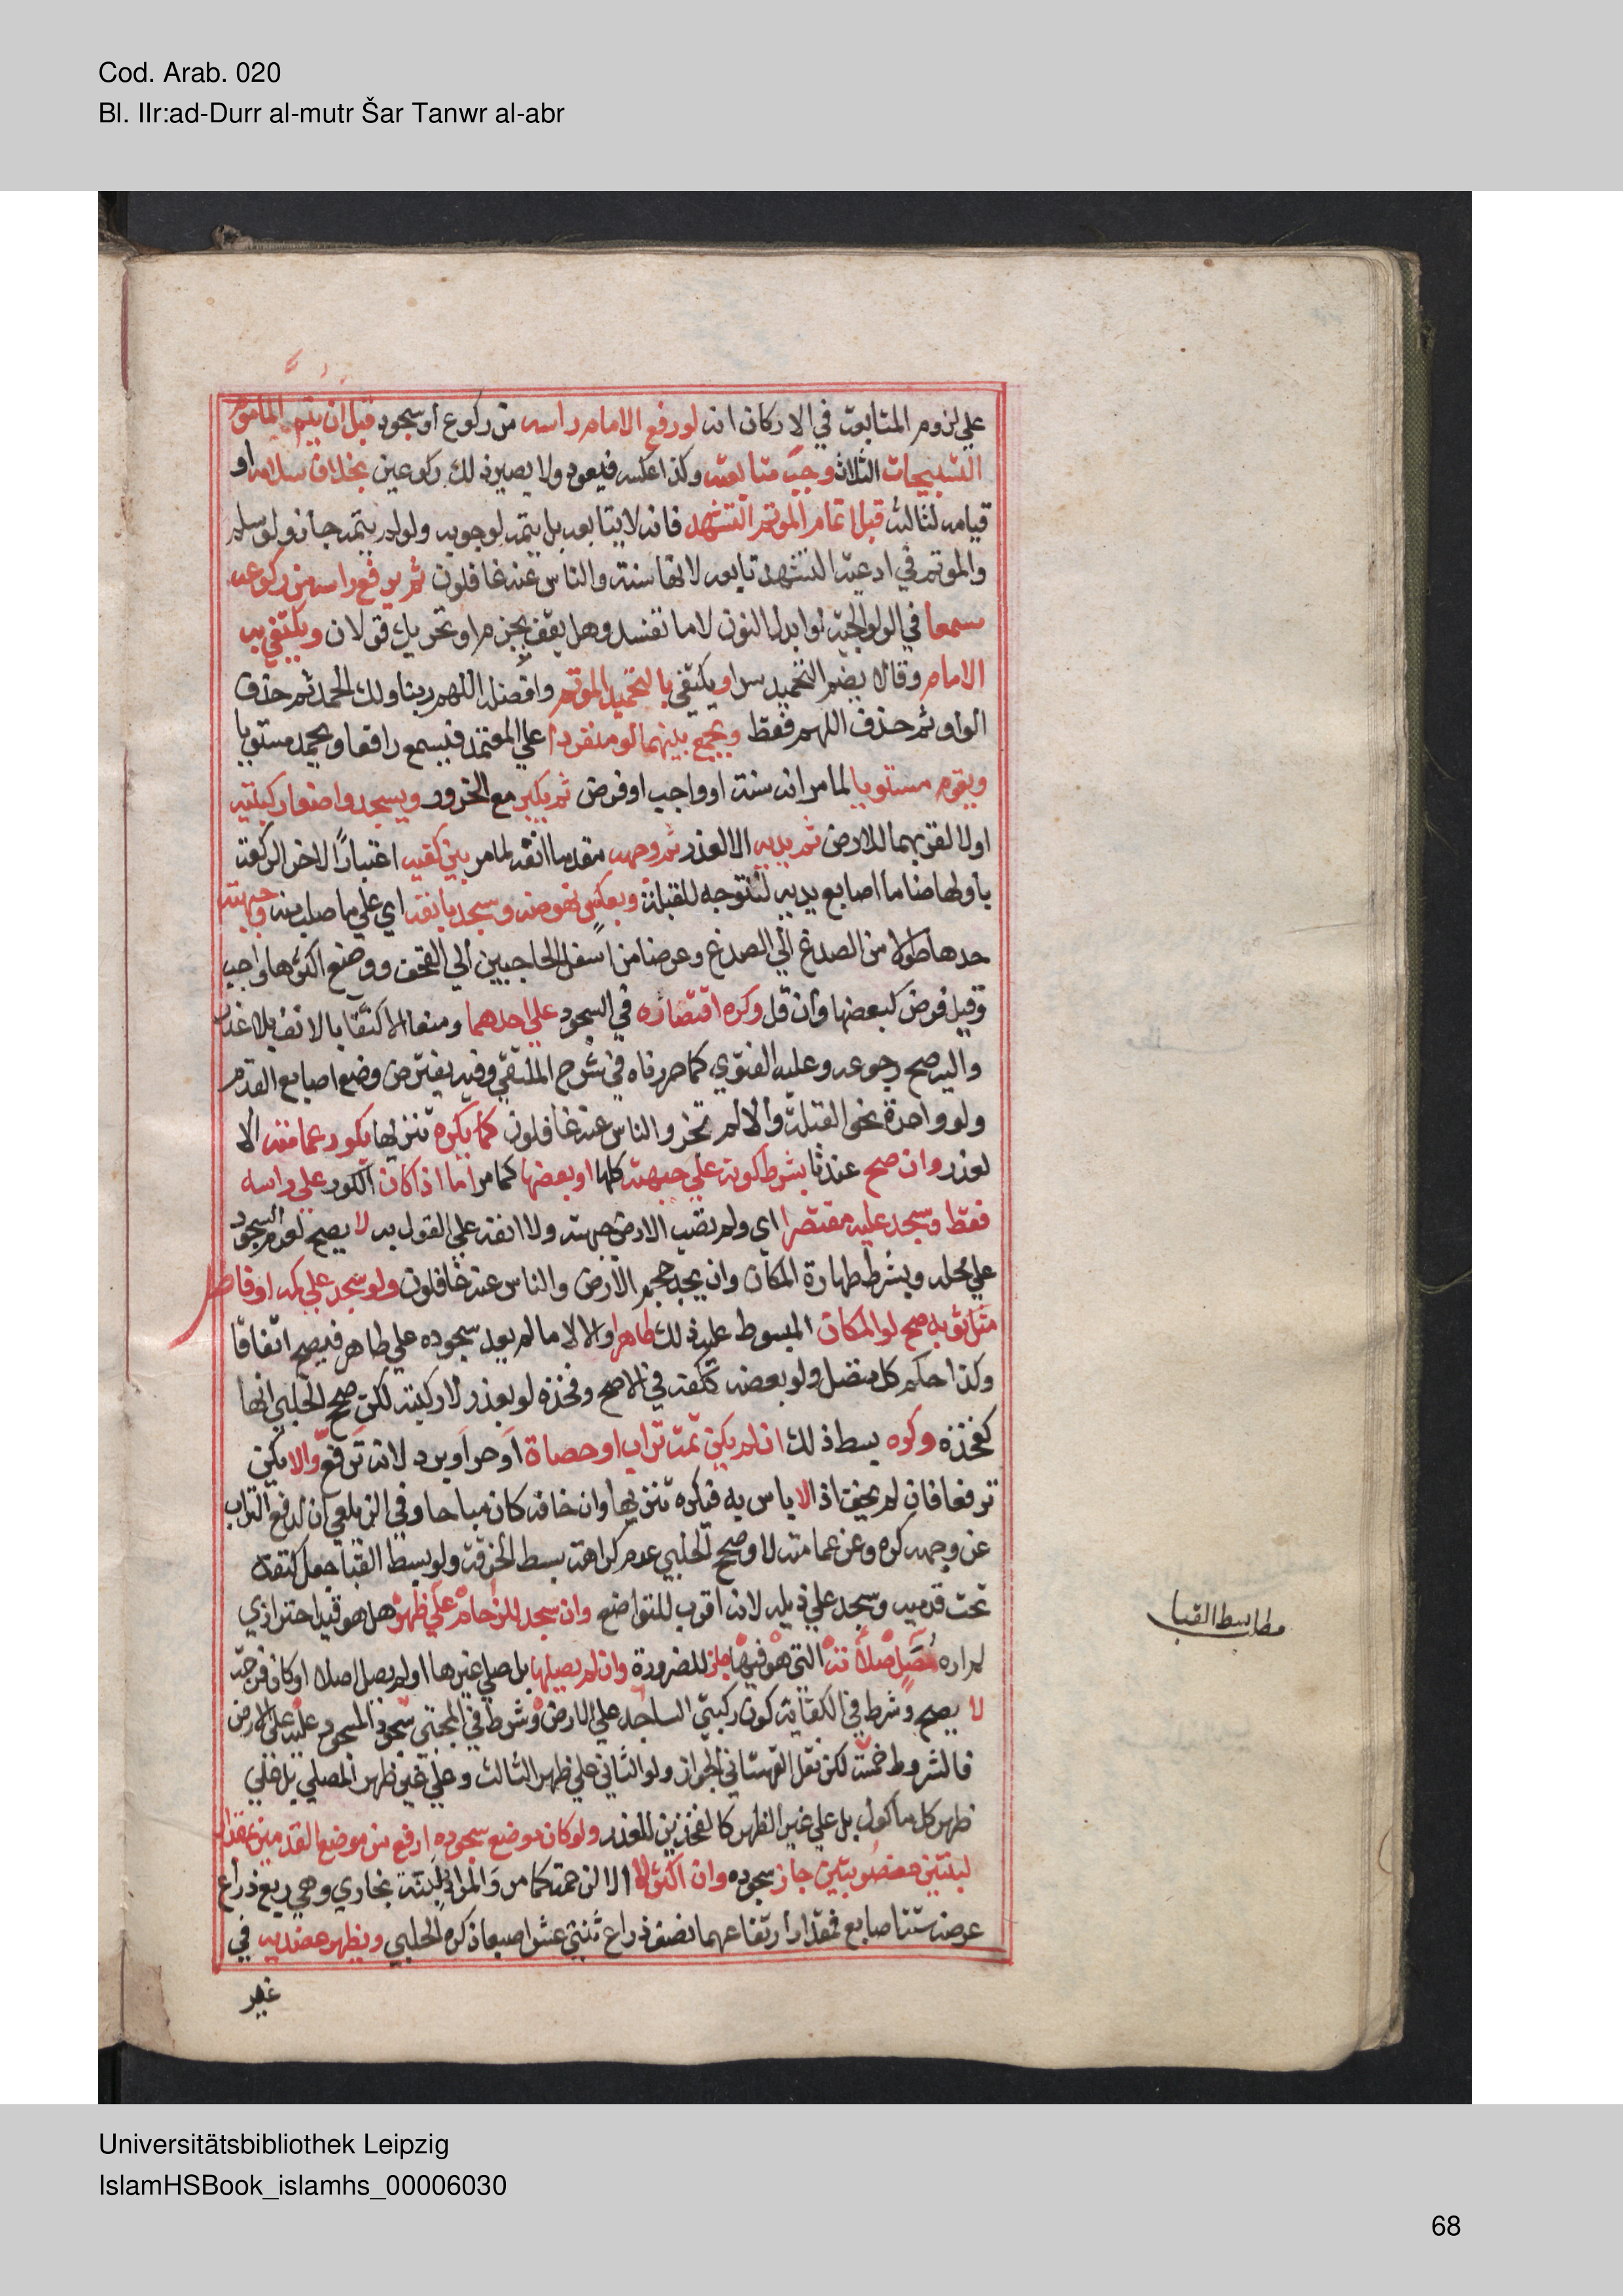 Cod. Arab. 020
Bl. IIr:ad-Durr al-mutr Šar Tanwr al-abr
علي لزوم المتابعة في الاركان انه لو رفع الامام راسه من ركوع او سجود قبل ان يتم الماموم
التسبيحات الثلاث وجب متابعته وكذا عكسه فيعود ولا يصير ذلك ركوعين بخلاف سلامه او
قيامه لثالثة قبل اتمام الموتم التشهد فانه لا يتابعه بل يتمه لوجوبه ولو لم يتمه جاز ولو سلم
والموتم في ادعية التشهد تابعه لانها سنة والناس عنه غافلون ثم يرفع راسه من ركوعه
مسمعا في الولوالجية لو ابدل النون لاما تفسد وهل يقف بجزم او تحريك قولان ويكتفي به
الامام وقالا يضم التحميد سرا ويكتفي بالتحميد الموتم وافضله اللهم ربنا ولك الحمد ثم حذف
الواو ثم حذف اللهم فقط ويجمع بينهما لو منفردا علي المعتمد فيسمع رافعا ويحمد مستويا
ويقوم مستويا لما مر انه سنة او واجب او فرض ثم يكبر مع الخرور ويسجد واضعا ركبتيه
اولا لقربهما للارض ثم يديه الا لعذر ثم وجهه مقدما انفه لما مر بين كفيه اعتبارًا لاخر الركعة
باولها ضاما اصابع يديه لتتوجه للقبلة وبعكس نهوضه وسجد بانفه اي علي ما صلب منه وجبهته
حدها طولا من الصدغ الي الصدغ وعرضا من اسفل الحاجبين الي القحف ووضع اكثرها واجب
وقيل فرض كبعضها وان قل وكره اقتصاره في السجود علي احدهما ومنعا الاكتفا بالانف بلا عذر
واليه صح رجوعه وعليه الفتوي كما حررناه في شرح الملتقي وفيه يفترض وضع اصابع القدم
ولو واحدة نحو القبلة والا لم تجز والناس عنه غافلون كما يكره تنزيها بكور عمامته الا
لعذر وان صح عندنا بشرط كونه علي جبهته كلها او بعضها كما مر اما اذا كان الكور علي راسه
فقط وسجد عليه مقتصرا اي ولم تصب الارض جبهته ولا انفه علي القول به لا يصح لعدم السجود
علي محله ويشرط طهارة المكان وان يجد حجم الارض والناس عنه غافلون ولو سجد علي كمه او فاضل
ثوبه صح لو المكان المبسوط عليه ذلك طاهرا والا لا ما لم يعد سجوده علي طاهر فيصح اتفاقا
وكذا حكم كل متصل ولو بعضه ككفه في الاصح وفخذه لو بعذر لا ركبته لكن صحح الحلبي انها
كفخذه وكره بسط ذلك ان لم يكن ثمة تراب او حصاة او حر او برد لانه ترفع والا يكن
ترفعا فان لم يخف اذا لا باس به فيكره تنزيها وان خافه كان مباحا وفي الزيلعي ان لدفع التراب
عن وجهه كره وعن عمامته لا وصحح الحلبي عدم كراهة بسط الخرقة ولو بسط القبا جعل كتفه
تحت قدميه وسجد علي ذيله لانه اقرب للتواضع وان سجد للزحام علي ظهر هل هو قيد احترازي
لم اره مصل صلاته التي هو فيها جاز للضرورة وان لم يصلها بل صلي غيرها او لم يصل اصلا او كان فرجة
لا يصح وشرط في الكفاية كون ركبتي الساجد علي الارض وشرط في المجتبي سجود المسجود عليه علي الارض
فالشروط خمسة لكن نقل القهستاني الجواز ولو الثاني علي ظهر الثالث وعلي غير ظهر المصلي بل علي
ظهر كل ماكول بل علي غير الظهر كالفخذين للعذر ولو كان موضع سجوده ارفع من موضع القدمين بمقدار
لبنتين منصوبتين جاز سجوده وان اكثر لا الا لزحمة كما مر والمراد لبنة بخاري وهي ربع ذراع
عرض ستة اصابع فمقدار ارتفاعهما نصف ذراع ثنتي عشر اصبعا ذكره الحلبي ويظهر عضديه في
غير
مطلب بسط القبا
Universitätsbibliothek Leipzig
IslamHSBook_islamhs_00006030
68